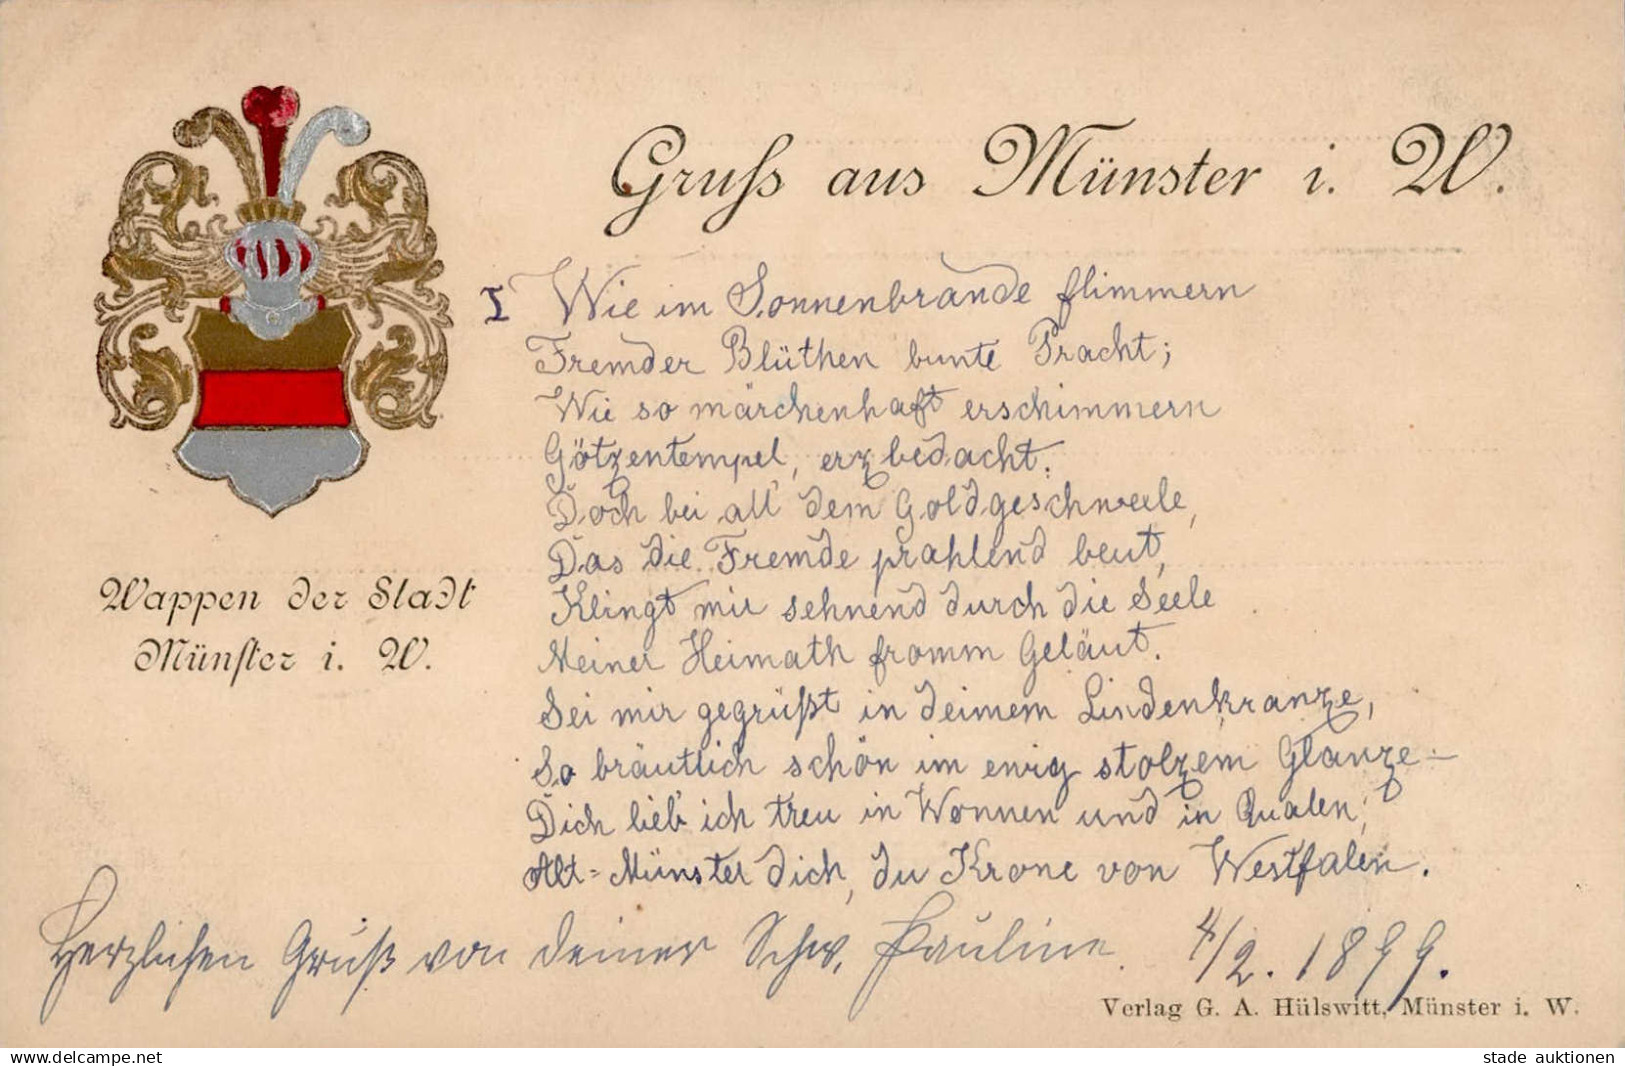 Gruss aus Münster i. W.
I Wie im Sonnenbrande flimmern
Fremder Blüthen bunte Pracht;
Wie so märchenhaft erschimmern
Götzentempel, erzbedacht.
Doch bei all' dem Goldgeschweele,
Das die Fremde prahlend beut,
Klingt mir sehnend durch die Seele
Meiner Heimath fromm Geläut.
Sei mir gegrüßt in deinem Lindenkranze,
So bräutlich schön im ewig stolzem Glanze –
Dich lieb' ich treu in Wonnen und in Qualen,
Alt-Münster dich, du Krone von Westfalen.
Wappen der Stadt
Münster i. W.
Herzlichen Gruß von deiner Schw. Pauline. 4/2. 1899.
Verlag G. A. Hülswitt, Münster i. W.
www.delcampe.net
stade auktionen